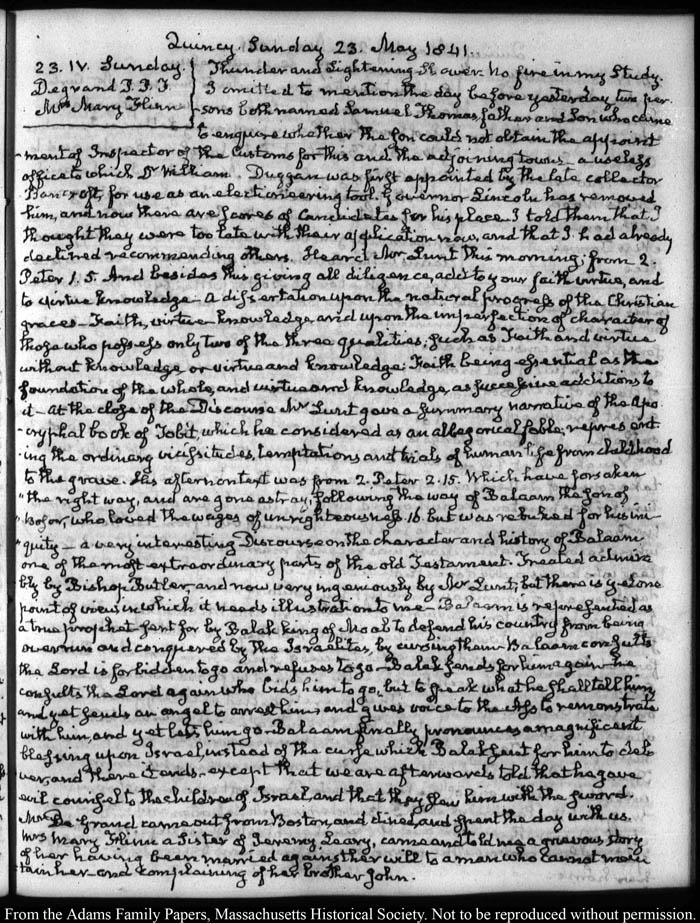 Quincy. Sunday 23. May 1841.
23. IV. Sunday.
Degrand P. P. F.
Mrs Mary Flinn
Thunder and Lightening Shower. No fire in my Study.
I omitted to mention the day before yesterday two per-
sons both named Samuel Thomas, father and Son who came
to enquire whether the son could not obtain the appoint
-ment of Inspector of the Customs for this and the adjoining towns— a useless
office to which William Duggan was first appointed by the late collector
Bancroft, for use as an electioneering tool. Governor Lincoln has removed
him, and now there are scores of Candidates for his place. I told them that I
thought they were too late with their application now, and that I had already
declined recommending others. Heard Mr Lunt this morning; from 2.
Peter 1. 5. And besides this giving all diligence, add to your faith virtue, and
to virtue knowledge— A dissertation upon the natural progress of the Christian
graces— Faith, virtue knowledge, and upon the imperfection of character of
those who possess only two of the three qualities; such as Faith and virtue
without knowledge or virtue and knowledge: Faith being essential as the
foundation of the whole, and virtue and knowledge, as successive additions to
it— At the close of the Discourse Mr Lunt gave a summary narrative of the Apo
-cryphal book of Tobit, which he considered as an allegorical fable; represent
-ing the ordinary vicissitudes, temptations and trials of human life from childhood
to the grave. His afternoon text was from 2. Peter 2. 15. Which have forsaken
"the right way, and are gone astray, following the way of Balaam the son of
"Bosor, who loved the wages of unrighteousness. 16. but was rebuked for his ini
"quity— a very interesting Discourse on the character and history of Balaam
one of the most extraordinary parts of the old Testament. Treated admira
bly by Bishop Butler, and now very ingeniously by Mr Lunt; but there is yet one
point of view in which it needs illustration to me— Balaam is represented as
a true prophet sent for by Balak king of Moab to defend his country from being
overrun and conquered by the Israelites, by cursing them— Balaam consults
the Lord is forbidden to go and refuses to go— Balak sends for him again— he
consults the Lord again who bids him to go, but to speak what he shall tell him
and yet sends an angel to arrest him, and gives voice to the Ass to remonstrate
with him, and yet lets him go— Balaam finally pronounces a magnificent
blessing upon Israel, instead of the curse which Balak sent for him to deli
ver, and there it ends— except that we are afterwards told that he gave
evil counsel to the children of Israel, and that they slew him with the sword.
Mr De Grand came out from Boston, and dined, and spent the day with us.
Mrs Mary Flinn a Sister of Jeremy Leary, came and told me a grievous story
of her having been married against her will to a man who cannot main
tain her— and complaining of her brother John.
From the Adams Family Papers, Massachusetts Historical Society. Not to be reproduced without permission.